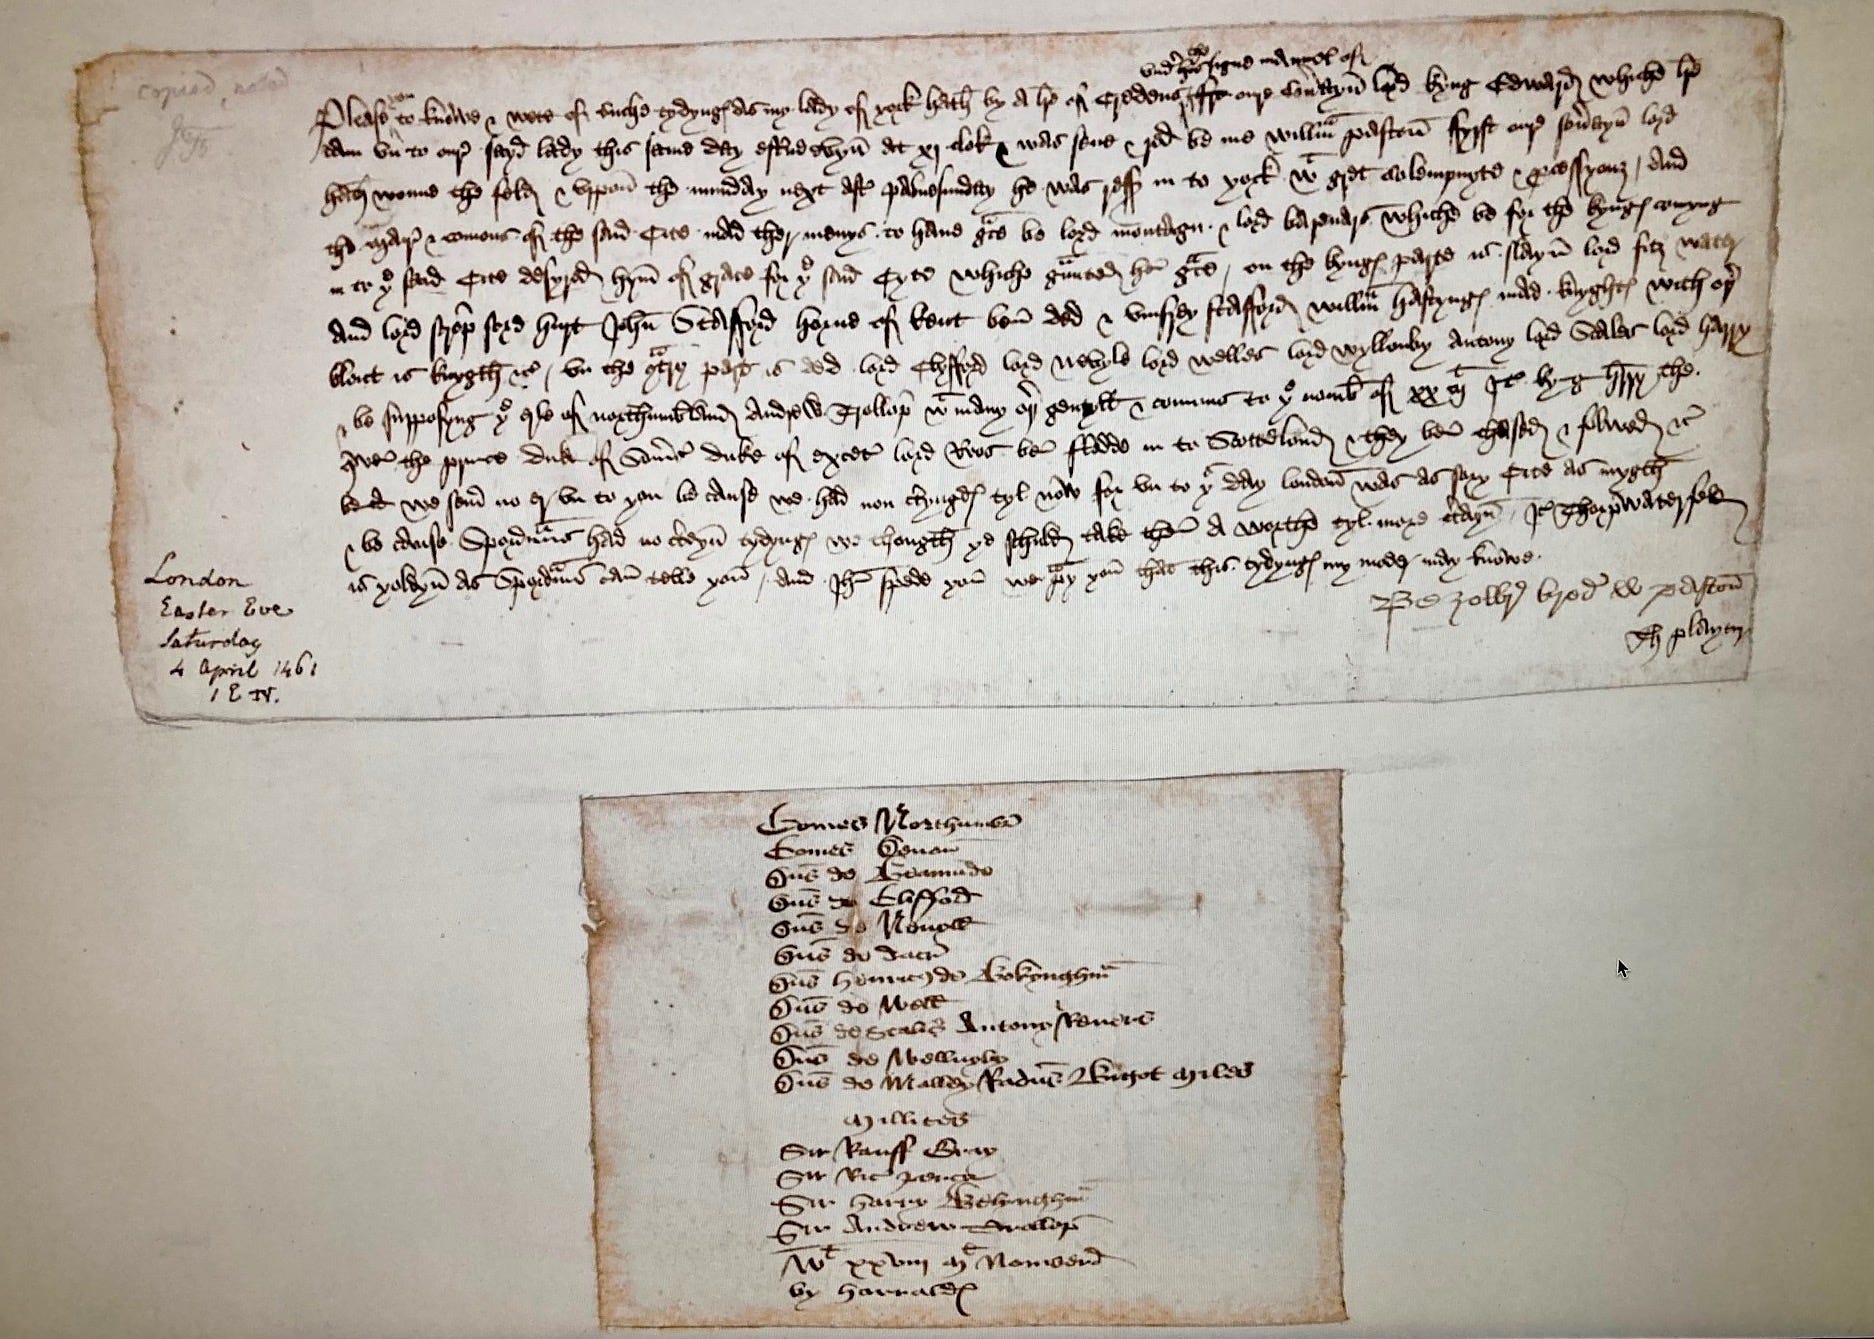 copied, noted
JG
vnder his signe manuel of
you
Please to knowe & wete of suche tydyngs as my lady of york hath by a lr̄e of credens fro oure soūayn lord kyng Edward whiche lr̄e
cam vn to our sayd lady this same day esterne evyn at xj clok & was sene & red be me Will̄m pastoñ fyrst our soūayn lord
hath wonne the feld & vppon the munday next aft̄ palmesunday he was resseū in to york wt gret solempnyte & p̄cessyons And
the mair & comons of the said Cite mad ther menys to have gr̄ce be lord montagu & lord barenars whiche be for the kyngs comyng
in to ye said Cite desyred hym of grace for ye said Cyte whiche graunted hem gr̄ce on the kyngs parte is slayn lord fitz watr
And lord scrop sore hurt John Stafford horne of kent ben ded & vmfrey stafford will̄m hastyngs mad knyghts with oþr
blont is knygth &c vn the contrary part is ded lord Clyfford lord nevyle lord welles lord wyllouby Antony lord Scales lord harry
& be supposyng ye erle of northumbland Andrew Trollop wt many oþr gentyll & comons to ye nomb̄ of xx ml Itē kyng harry the
qwen the prince duke of Som̄s duke of excet̄ lord Roos ben fledde in to Scotteland & they ben chased & folwed &c
we sent no er vn to you be cause we had non c̄tyngs tyl now for vn to ys day london was as sory Cite as mygth
& be cause Spordams had no c̄teyn tydyngs we thougth ye schuld take them a worthe tyl more c̄tayn Itē Thorpwaterfeld
is yoldyn as Spordams can telle you And Jh̄u spede you we pray you that this tydyngs my moder may knowe
Be yowr brod̄ W pastoñ
Th playters
London
Easter Eve
Saturday
4 April 1461
1 E IV.
Comes Northumbr̄
Comes Devoñ
Dn̄s de Beamunde
Dn̄s de Clifford
Dn̄s de Nevyll
Dn̄s de Dacr̄
Dn̄s Henricus de Bokynghm̄
Dn̄s de Well
Dn̄s de Scales Antony Revers
Dn̄s de Wellugby
Dn̄s de Malley Radus Bigot Miles
Millites
Sir Rauff Grey
Sir Ric Percy
Sir Harry Belyngham
Sir Andrew Trollop
Wt xxviij Ml Nomberd
by Harralds